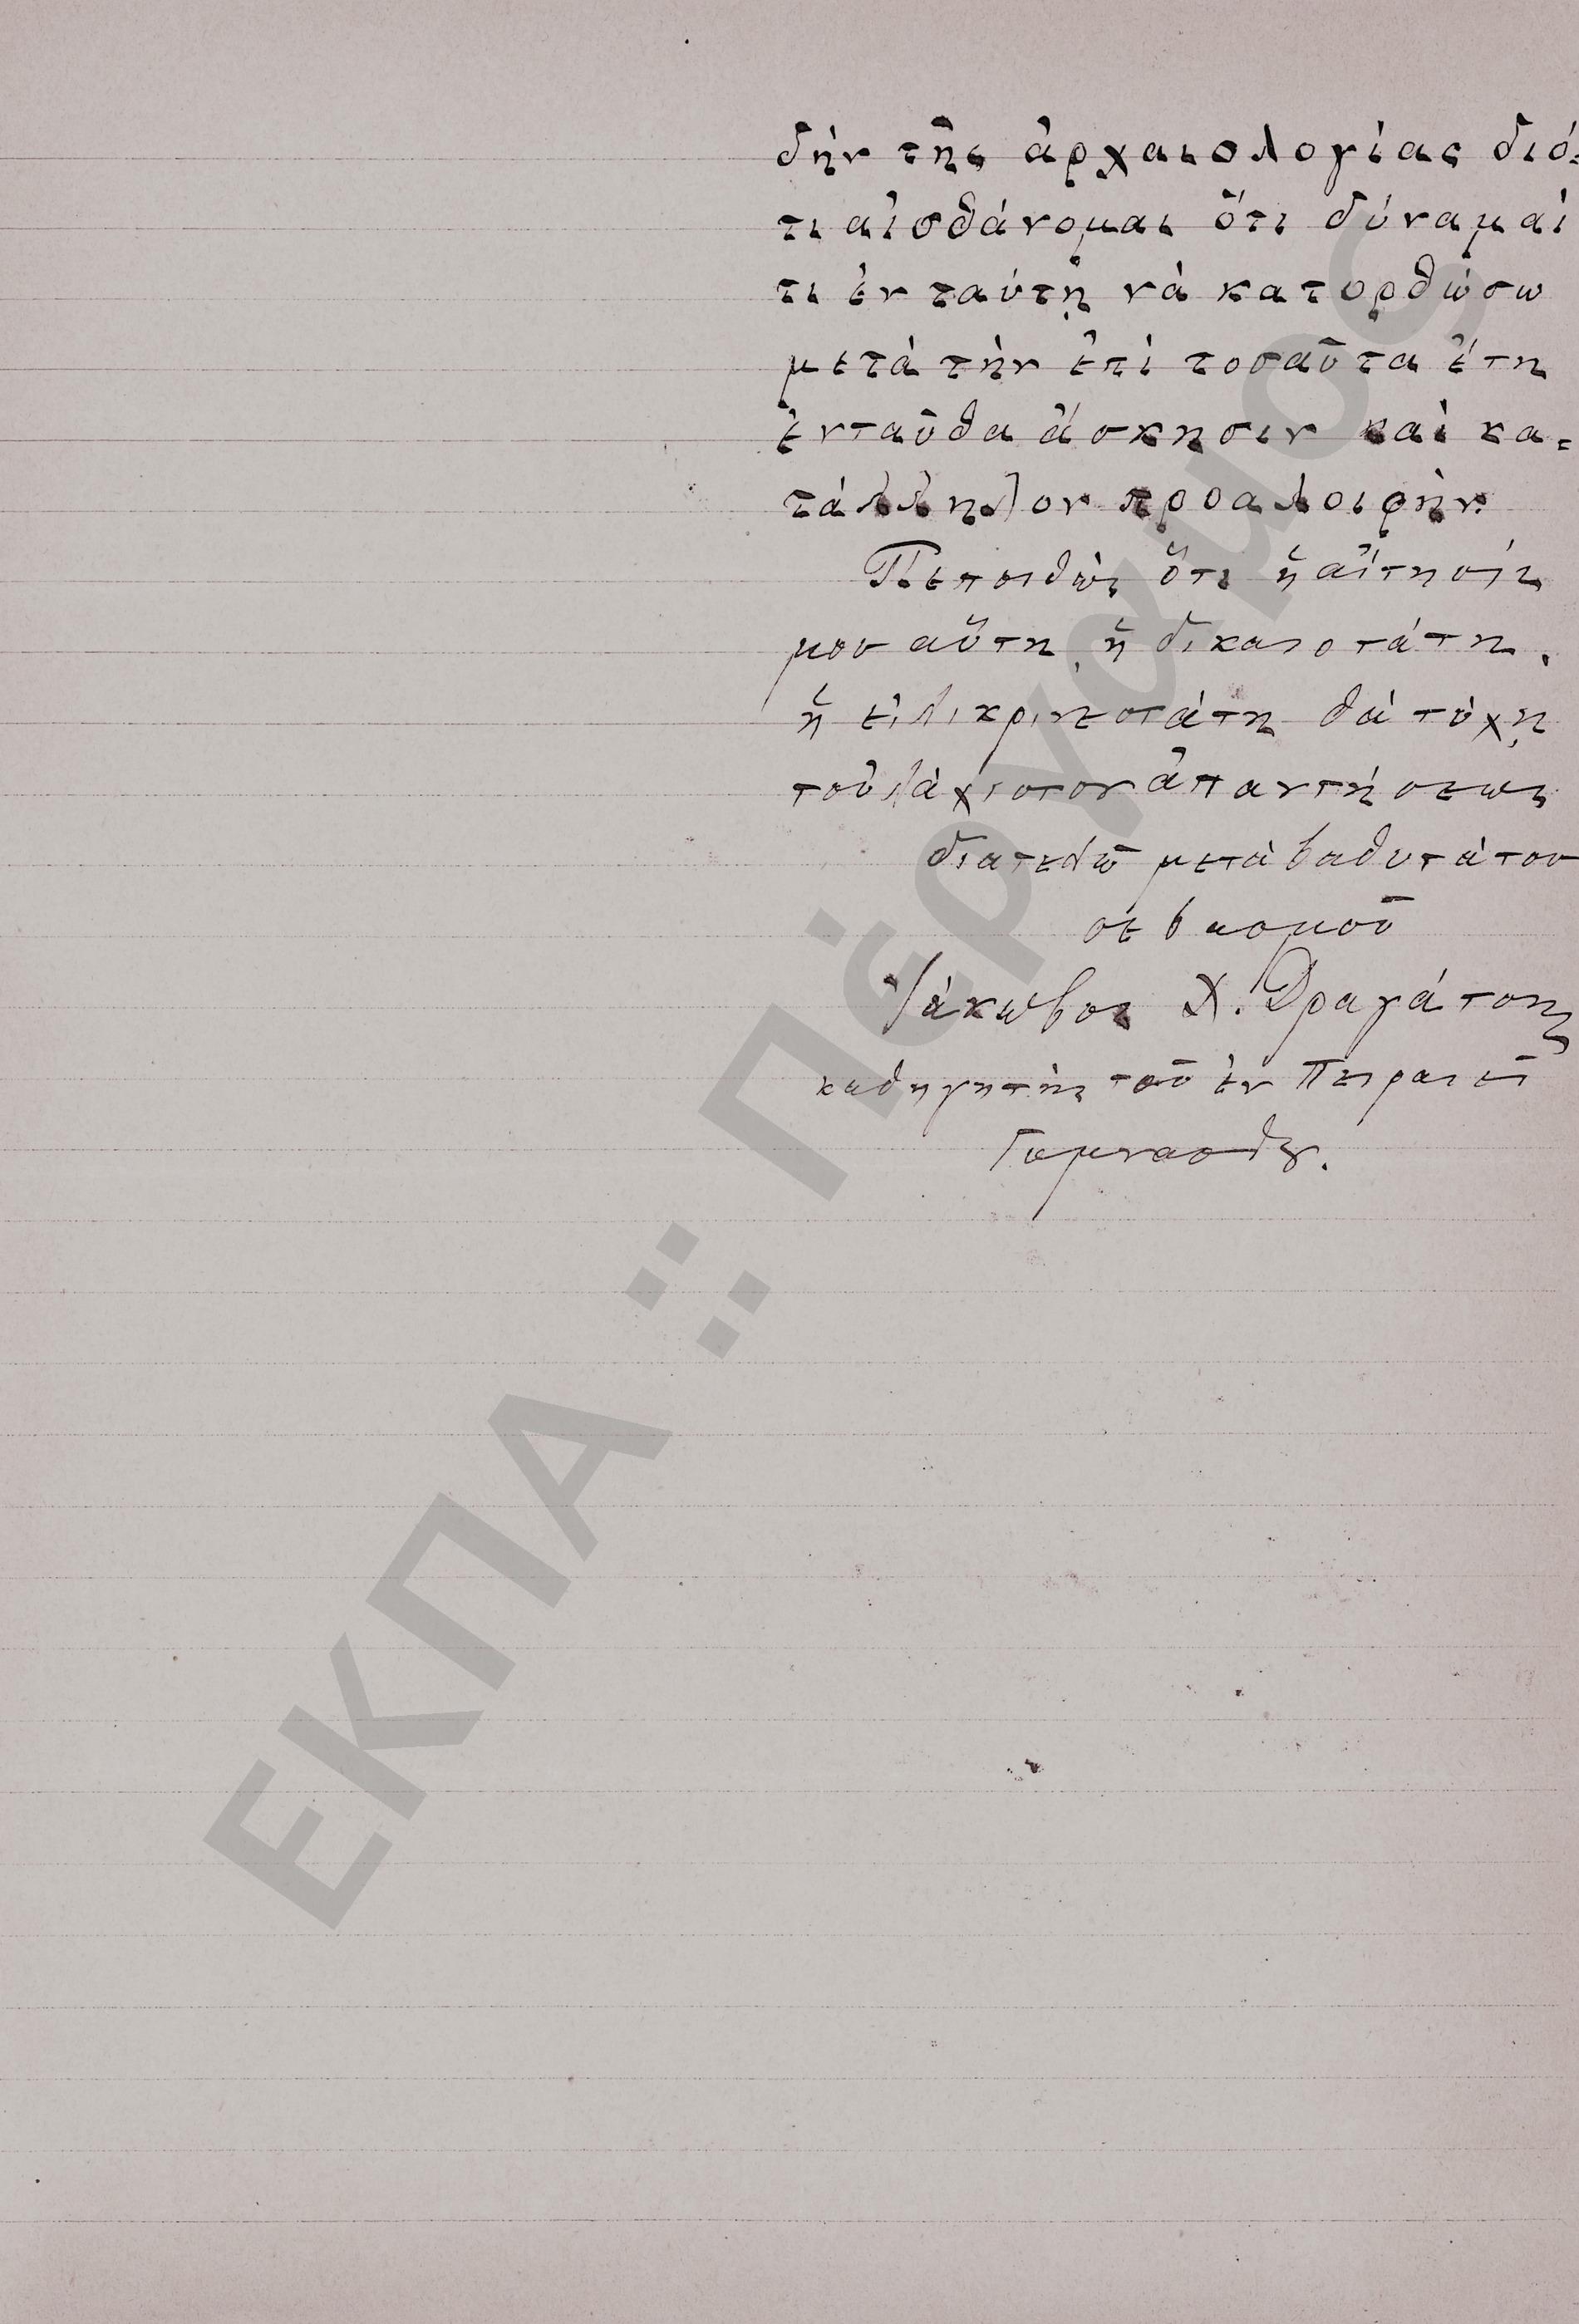 δὴν τῆς ἀρχαιολογίας διό=
τι αἰσθάνομαι ὅτι δύναμαί
τι ἐν ταύτῃ νὰ κατορθώσω
μετὰ τὴν ἐπὶ τοσαῦτα ἔτη
ἐνταῦθα ἄσκησιν καὶ κα=
τάλληλον προαλοιφήν.
Πεποιθὼς ὅτι ἡ αἴτησίς
μου αὕτη, ἡ δικαιοτάτη,
ἡ εἰλικρινεστάτη θὰ τύχῃ
τοὐλάχιστον ἀπαντήσεως
διατελῶ μετὰ βαθυτάτου
σεβασμοῦ
Ἰάκωβος Χ. Δραγάτσης
καθηγητὴς τοῦ ἐν Πειραιεῖ
Γυμνασίου.
ΕΚΠΑ :: Πέργαμος